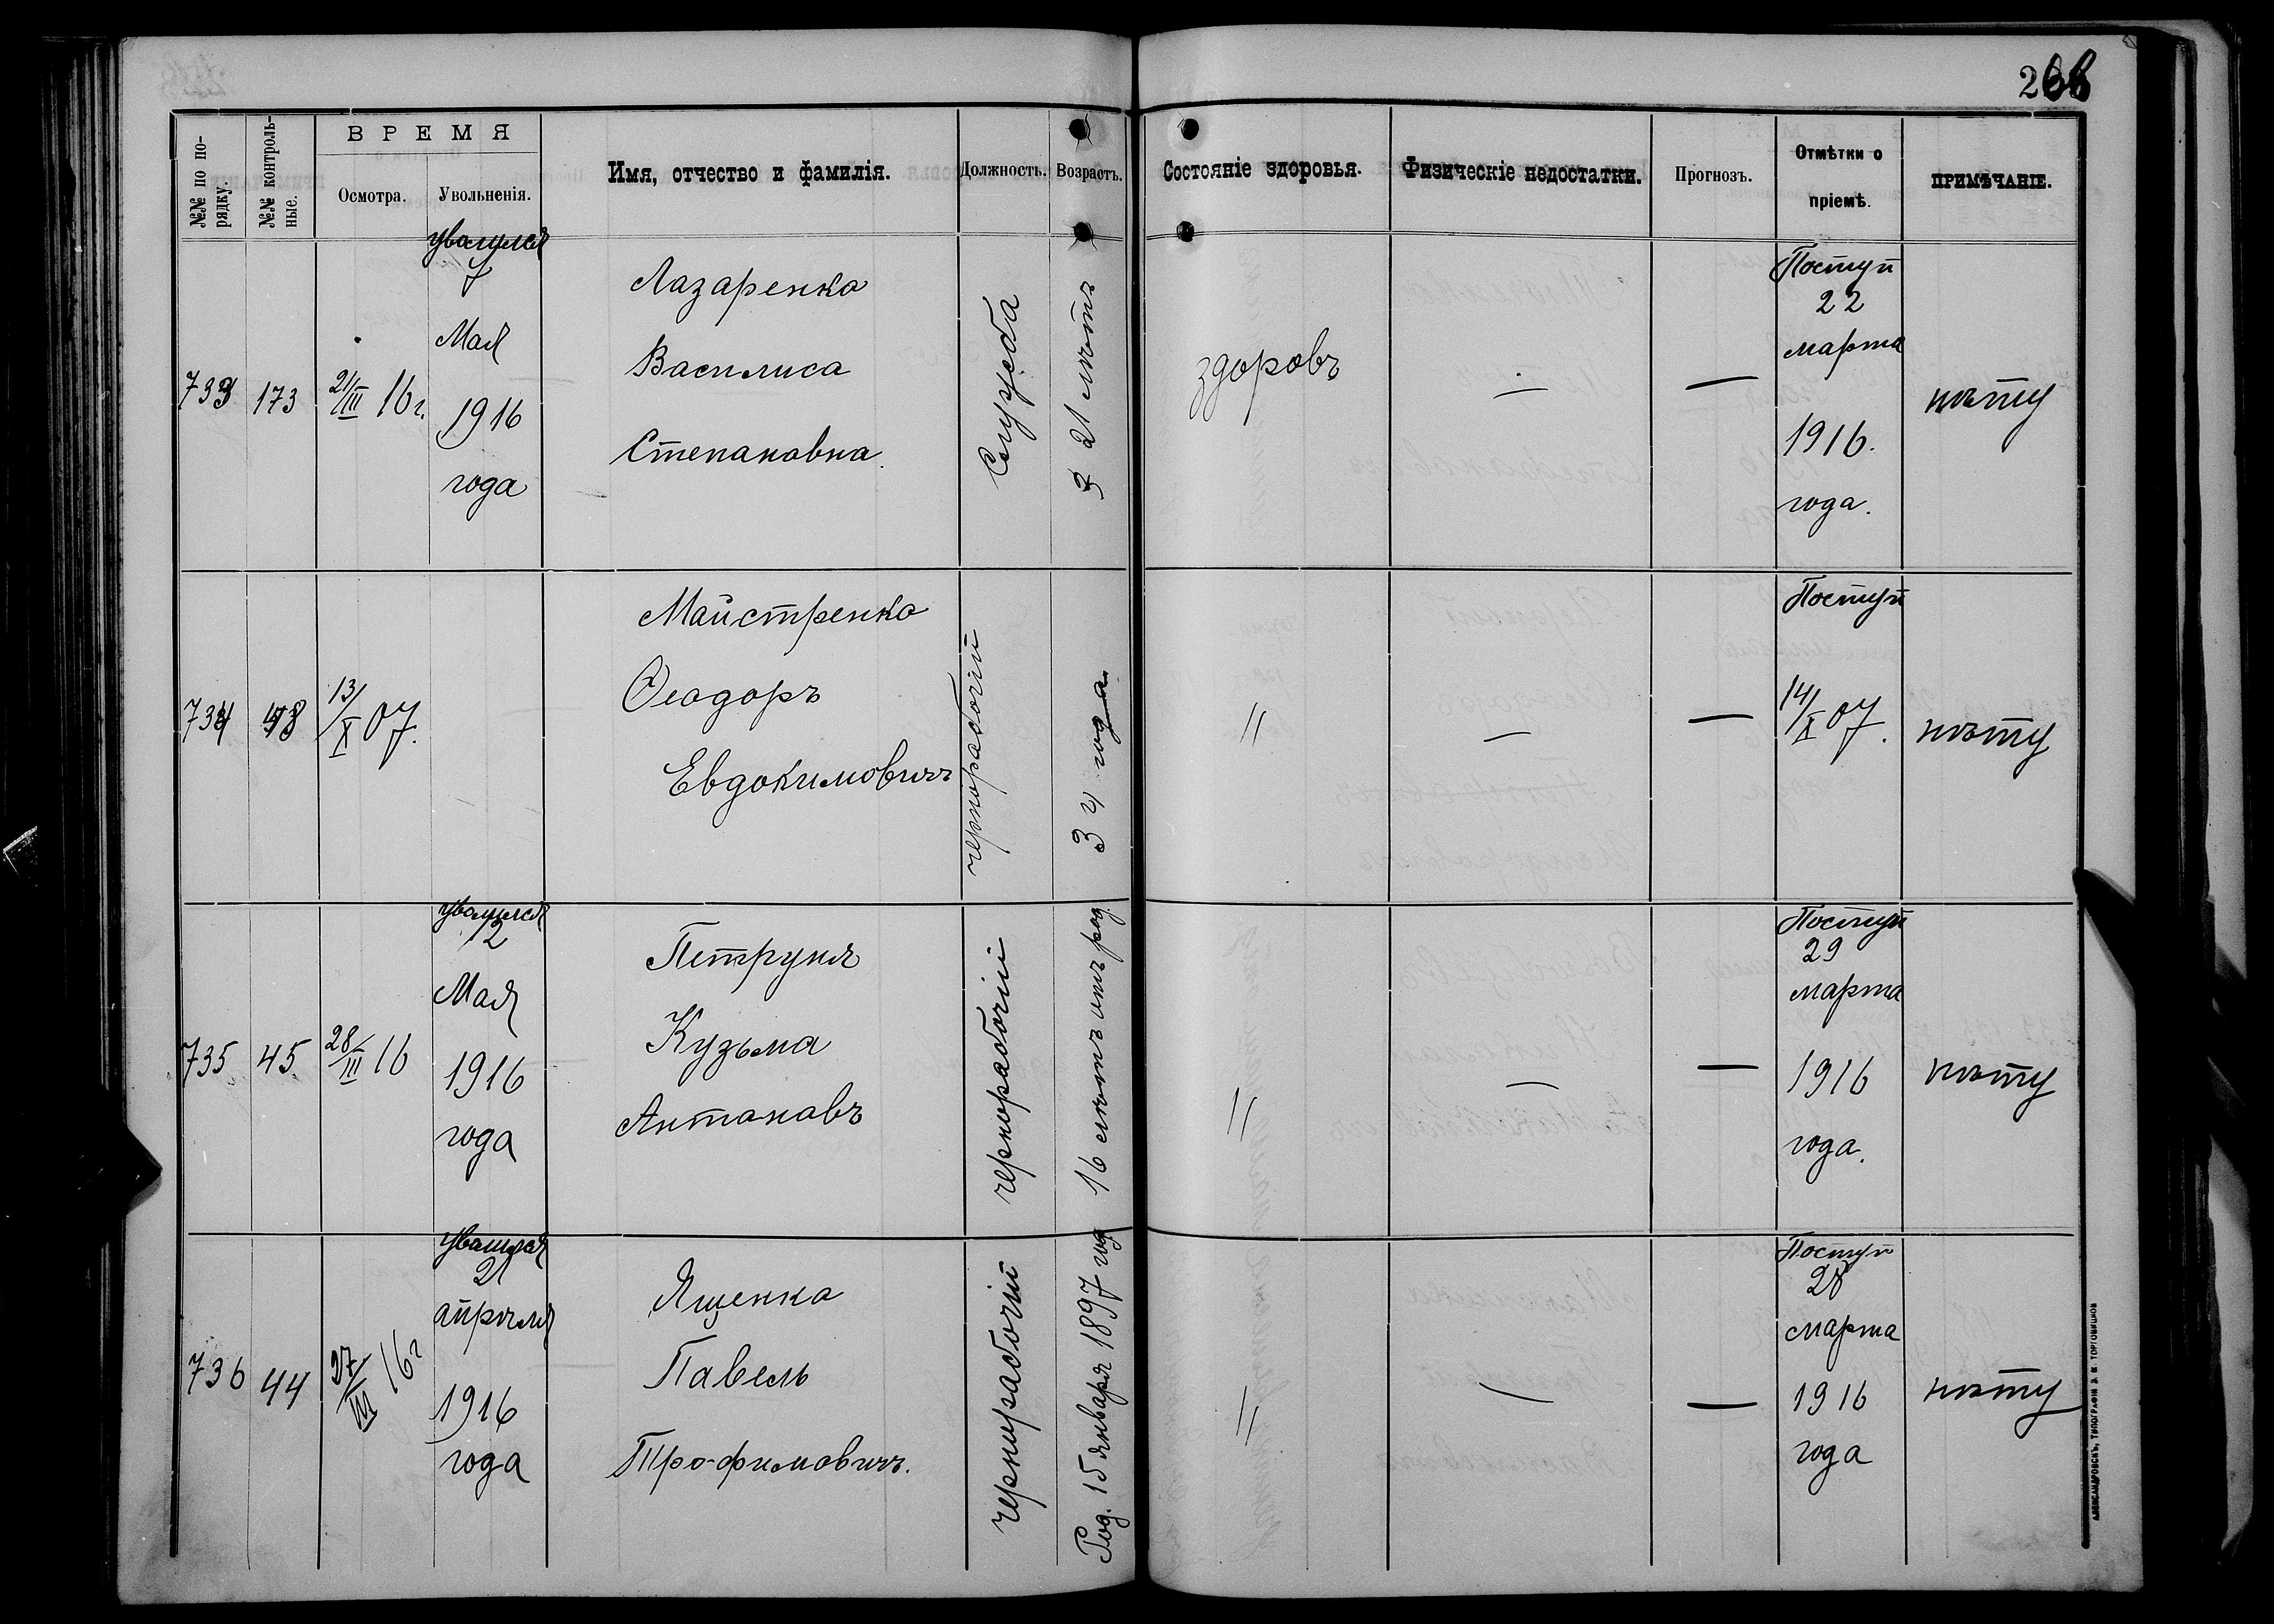 266
№№ по по-
рядку.
№№ контроль-
ные.
ВРЕМЯ
Осмотра.
Увольненія.
Имя, отчество и фамилія.
Должность.
Возрастъ.
Состояніе здоровья.
Физическіе недостатки.
Прогнозъ.
Отмѣтки о
пріемѣ.
ПРИМѢЧАНІЕ.
733
173
21/III 16 г.
уволился
7
Мая
1916
года
Лазаренко
Василиса
Степановна
Служба
21 лѣтъ
здоровъ
—
—
Поступ
22
марта
1916.
года.
нѣту
734
48
13/X 07.
Майстренко
Ѳеодоръ
Евдокимовичъ
чернорабочій
34 года
"
—
—
Поступ
14/X 07.
нѣту
735
45
28/III 16
уволился
2
Мая
1916
года
Петруня
Кузьма
Антоновъ
чернорабочій
16 лѣтъ отъ род
"
—
—
Поступ
29
марта
1916
года.
нѣту
736
44
27/III 16 г
уволился
21
апрѣля
1916
года
Ященко
Павелъ
Трофимовичъ.
чернорабочій
Род. 15 января 1897 год
"
—
—
Поступ
28
марта
1916
года
нѣту
АЛЕКСАНДРОВСКЪ, ТИПОГРАФІЯ Э. И. ТОРГОВИЦКОВ